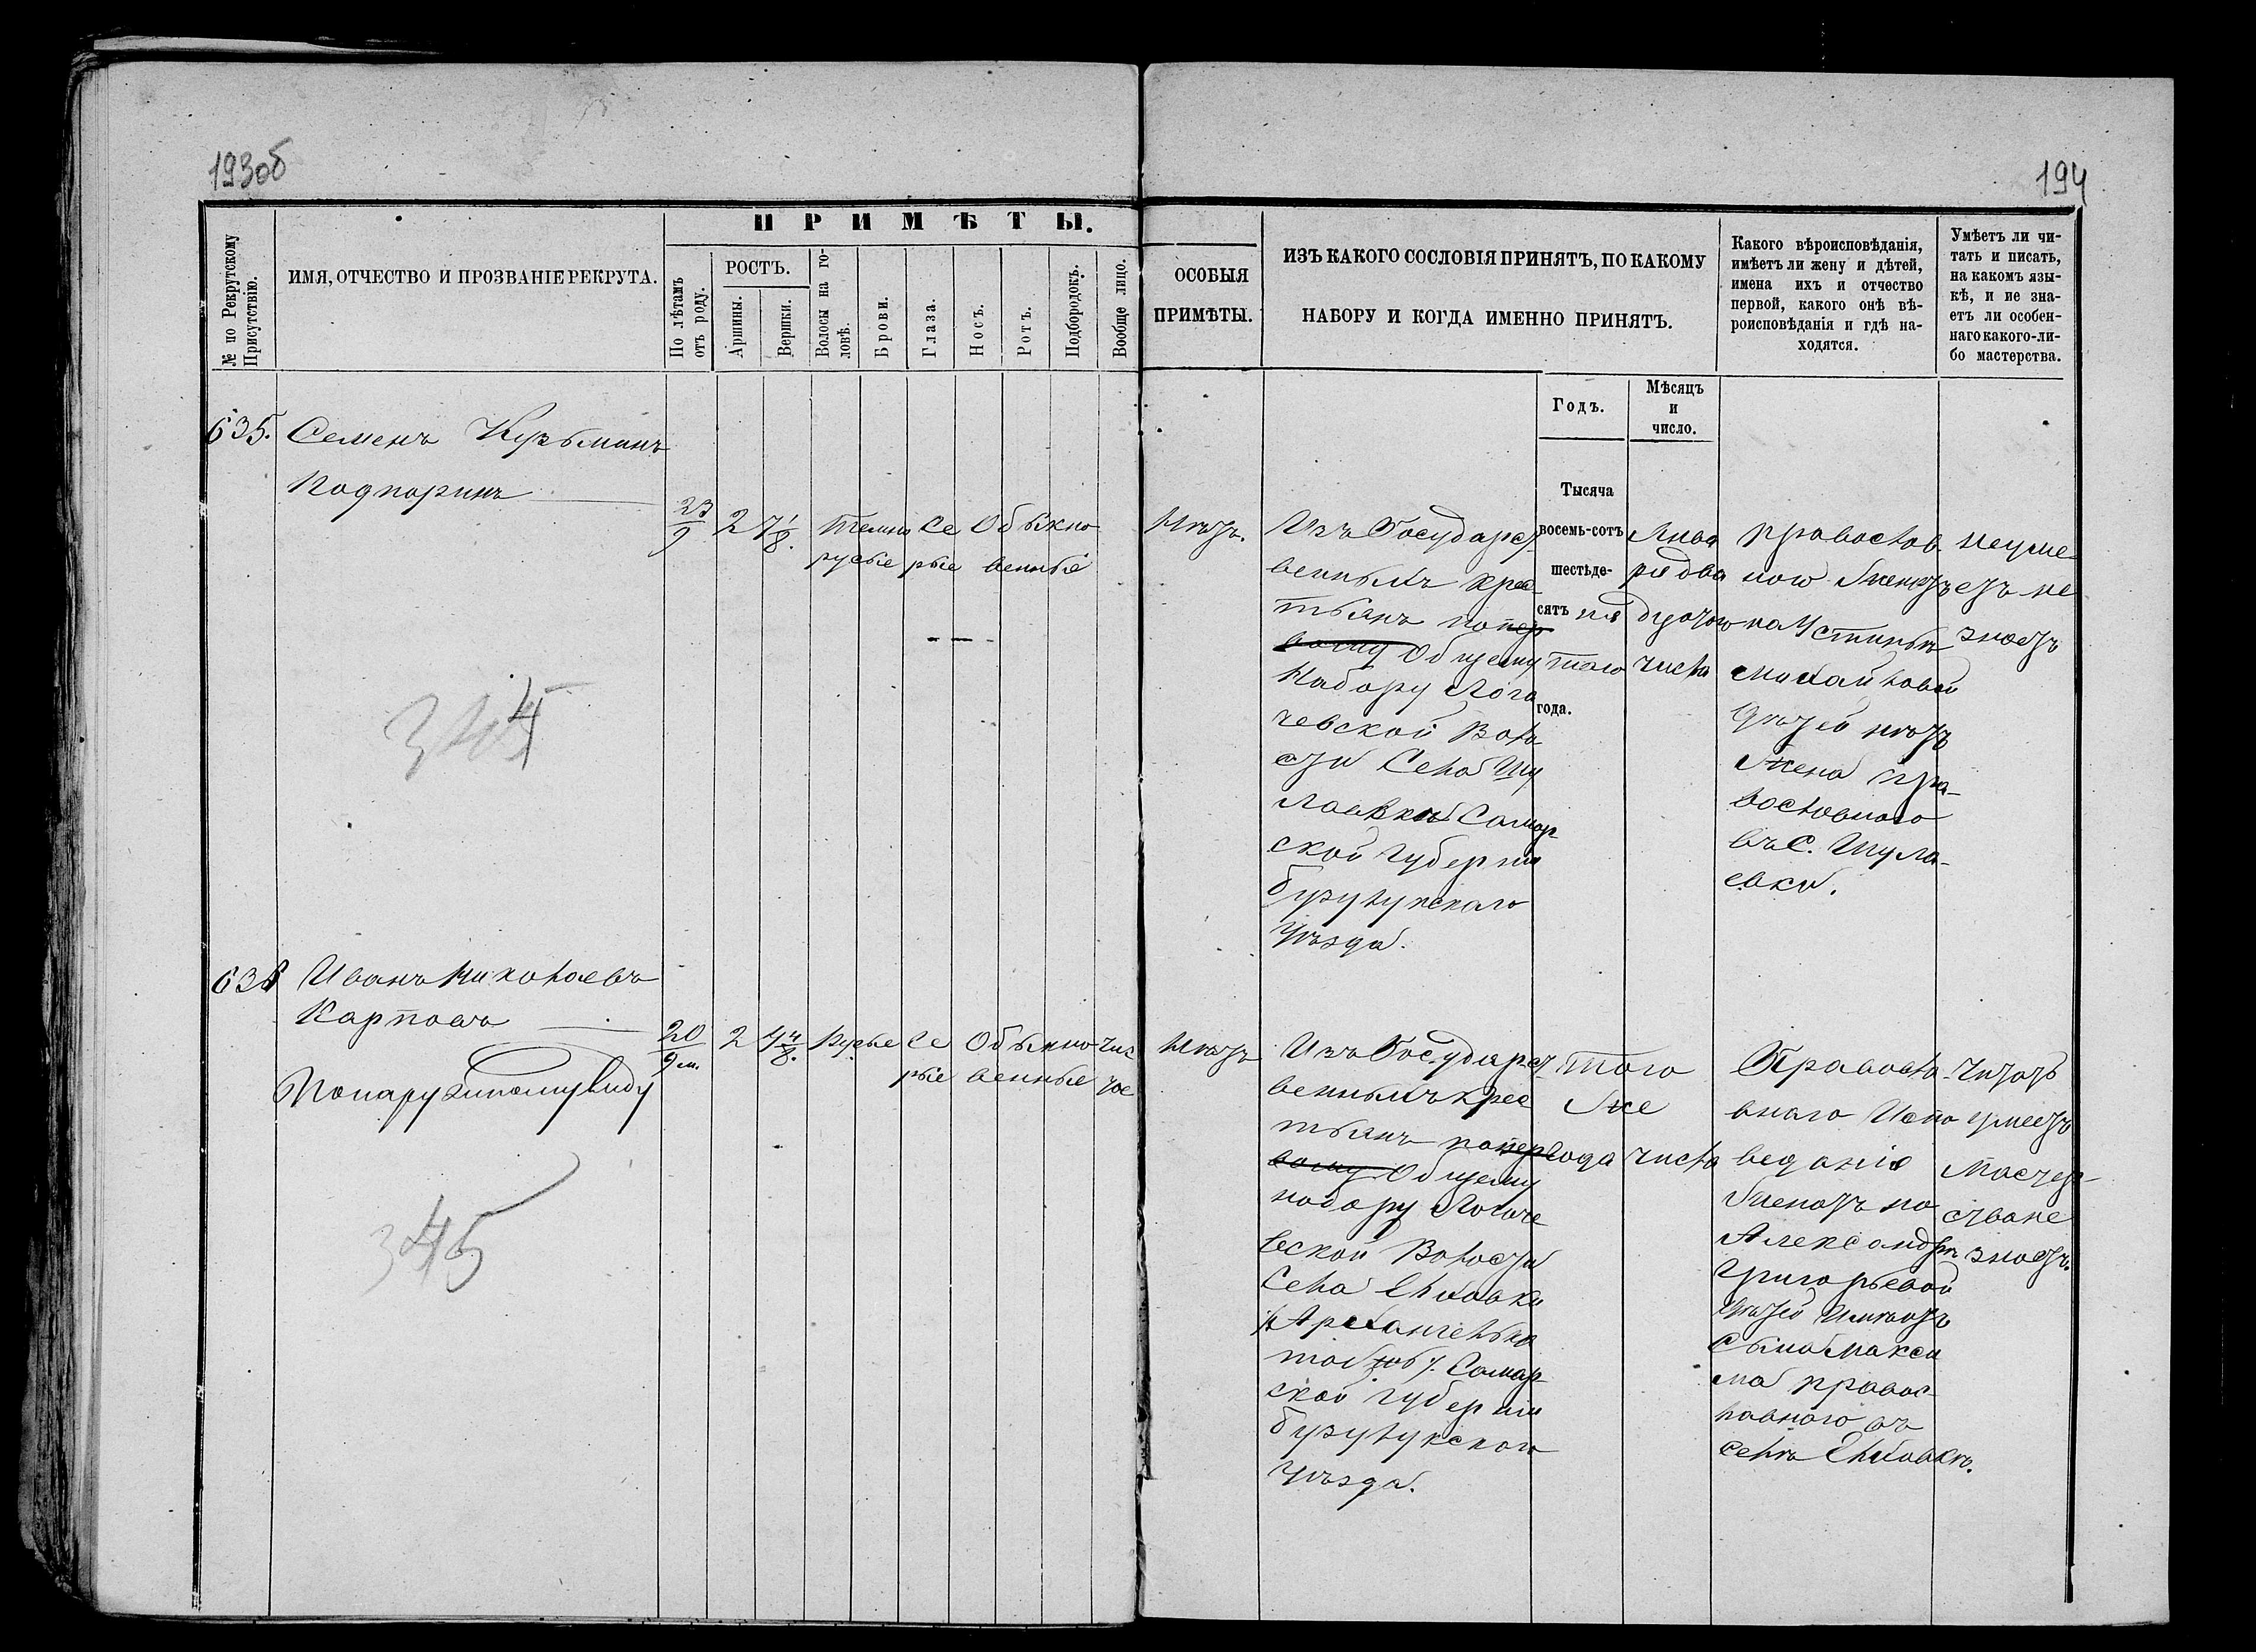 193об
194
ПРИМѢТЫ.
№ по Рекрутскому Присутствію.
ИМЯ, ОТЧЕСТВО И ПРОЗВАНІЕ РЕКРУТА.
По лѣтамъ отъ роду.
РОСТЪ.
Аршины.
Вершки.
Волосы на головѣ.
Брови.
Глаза.
Носъ.
Ротъ.
Подбородокъ.
Вообще лицо.
ОСОБЫЯ
ПРИМѢТЫ.
ИЗЪ КАКОГО СОСЛОВІЯ ПРИНЯТЪ, ПО КАКОМУ
НАБОРУ И КОГДА ИМЕННО ПРИНЯТЪ.
Какого вѣроисповѣданія,
имѣетъ ли жену и дѣтей,
имена ихъ и отчество
первой, какого онѣ вѣ-
роисповѣданія и гдѣ на-
ходятся.
Умѣетъ ли чи-
тать и писать,
на какомъ язы-
кѣ, и не зна-
етъ ли особен-
наго какого-ли-
бо мастерства.
Годъ.
Мѣсяцъ
и
число.
635.
Семенъ Кузьминъ
Подпоринъ
23
9
2
7 1/8.
Темно
русые
Се
рые
Обыкно
венные
Нѣтъ.
Изъ Государст
венныхъ крес
тьянъ по пер
вому Общему
Набору Лога
чевской Воло
сти Села Шу
лаевки Самар
ской губерніи
бузулукскаго
Уѣзда.
Тысяча
восемь-сотъ
шестьде-
сятъ пя
таго
года.
Янва
ря два
дцатого
числа
православ
ного женатъ
на Устиньи
Михайловой
Детей нетъ
Жена пра-
вославного
въ С. Шула-
евки.
неуме
етъ не
знаетъ
345
636
Иванъ Николаевъ
Карповъ
Понаружному виду
20
9 м.
2
4 4/8.
Русые
Се
рые
Обыкно
венные
чис
тое
Нѣтъ
Изъ Государст
венныхъ крес
тьянъ по пер
вому Общему
набору Логаче
вской Волости
Села Елховки
/ Архангельско
тож / Самар
ской губерніи
бузулукского
Уѣзда.
того
же
года
числа
Правосла
внаго Испо
веданія
женатъ на
Александре
Григорьевой
Детей Имѣетъ
Сына Макси
ма правос-
лавного въ
селѣ Елховкѣ.
Читать
умеетъ
Мастер-
ства не
знаетъ.
345